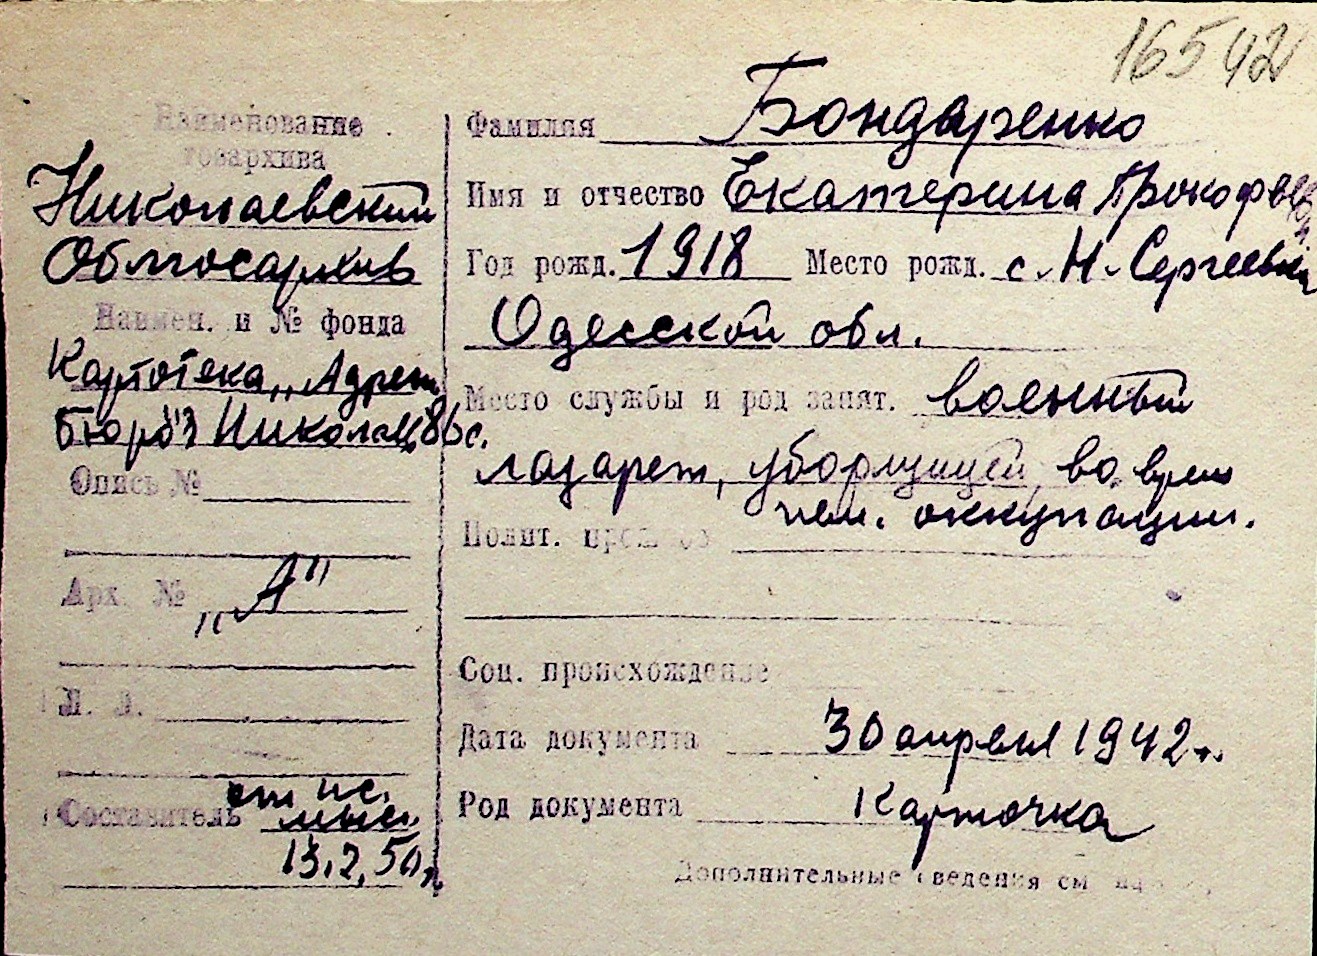 16542
Наименование
госархива
Николаевский
Облгосархив
Наимен. и № фонда
Картотека „Адресн.
Бюро" г. Николаев
Опись №
Арх. № „А"
Л. Л.
Составитель
13.2.50 г.
Фамилия Бондаренко
Имя и отчество Екатерина Прокофьевна
Год рожд. 1918 Место рожд. с. Н-Сергеевка
Одесской обл.
Место службы и род занят. военный
лазарет, уборщицей, во время
нем. оккупации.
Полит. прошлое
Соц. происхождение
Дата документа 30 апреля 1942 г.
Род документа Карточка
Дополнительные сведения см